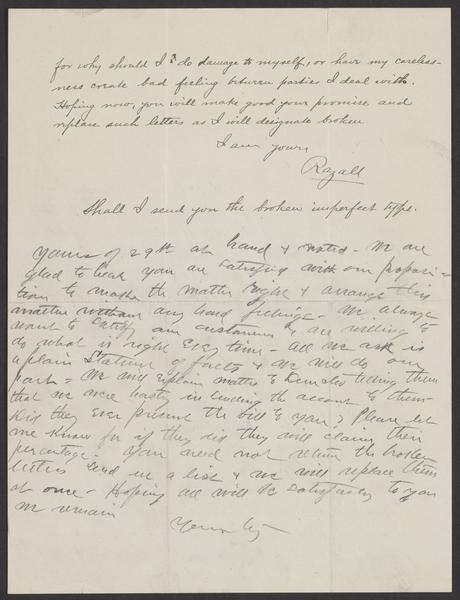 for why should I? do damage to myself, or have my careless-
ness create bad feeling between parties I deal with.
Hoping now, you will make good your promise and
replace such letters as I will designate broken
I am yours
Razall
Shall I send you the broken imperfect type.
Yours of 29th at hand & noted - We are
glad to hear you are satisfied with our proposi-
tion to make the matter right & arrange this
matter without any hard feelings - We always
want to satisfy our customers & are willing to
do what is right every time - All we ask is
a plain statement of facts & we will do our
part - We will explain matter to telling them
that we were hasty in sending the account to them -
Did they ever present the bill to you? Please let
me know for if they did they will claim their
percentage - You need not return the broken
letters send us a list & we will replace them
at once - Hoping all will be satisfactory to you
We remain
Yours